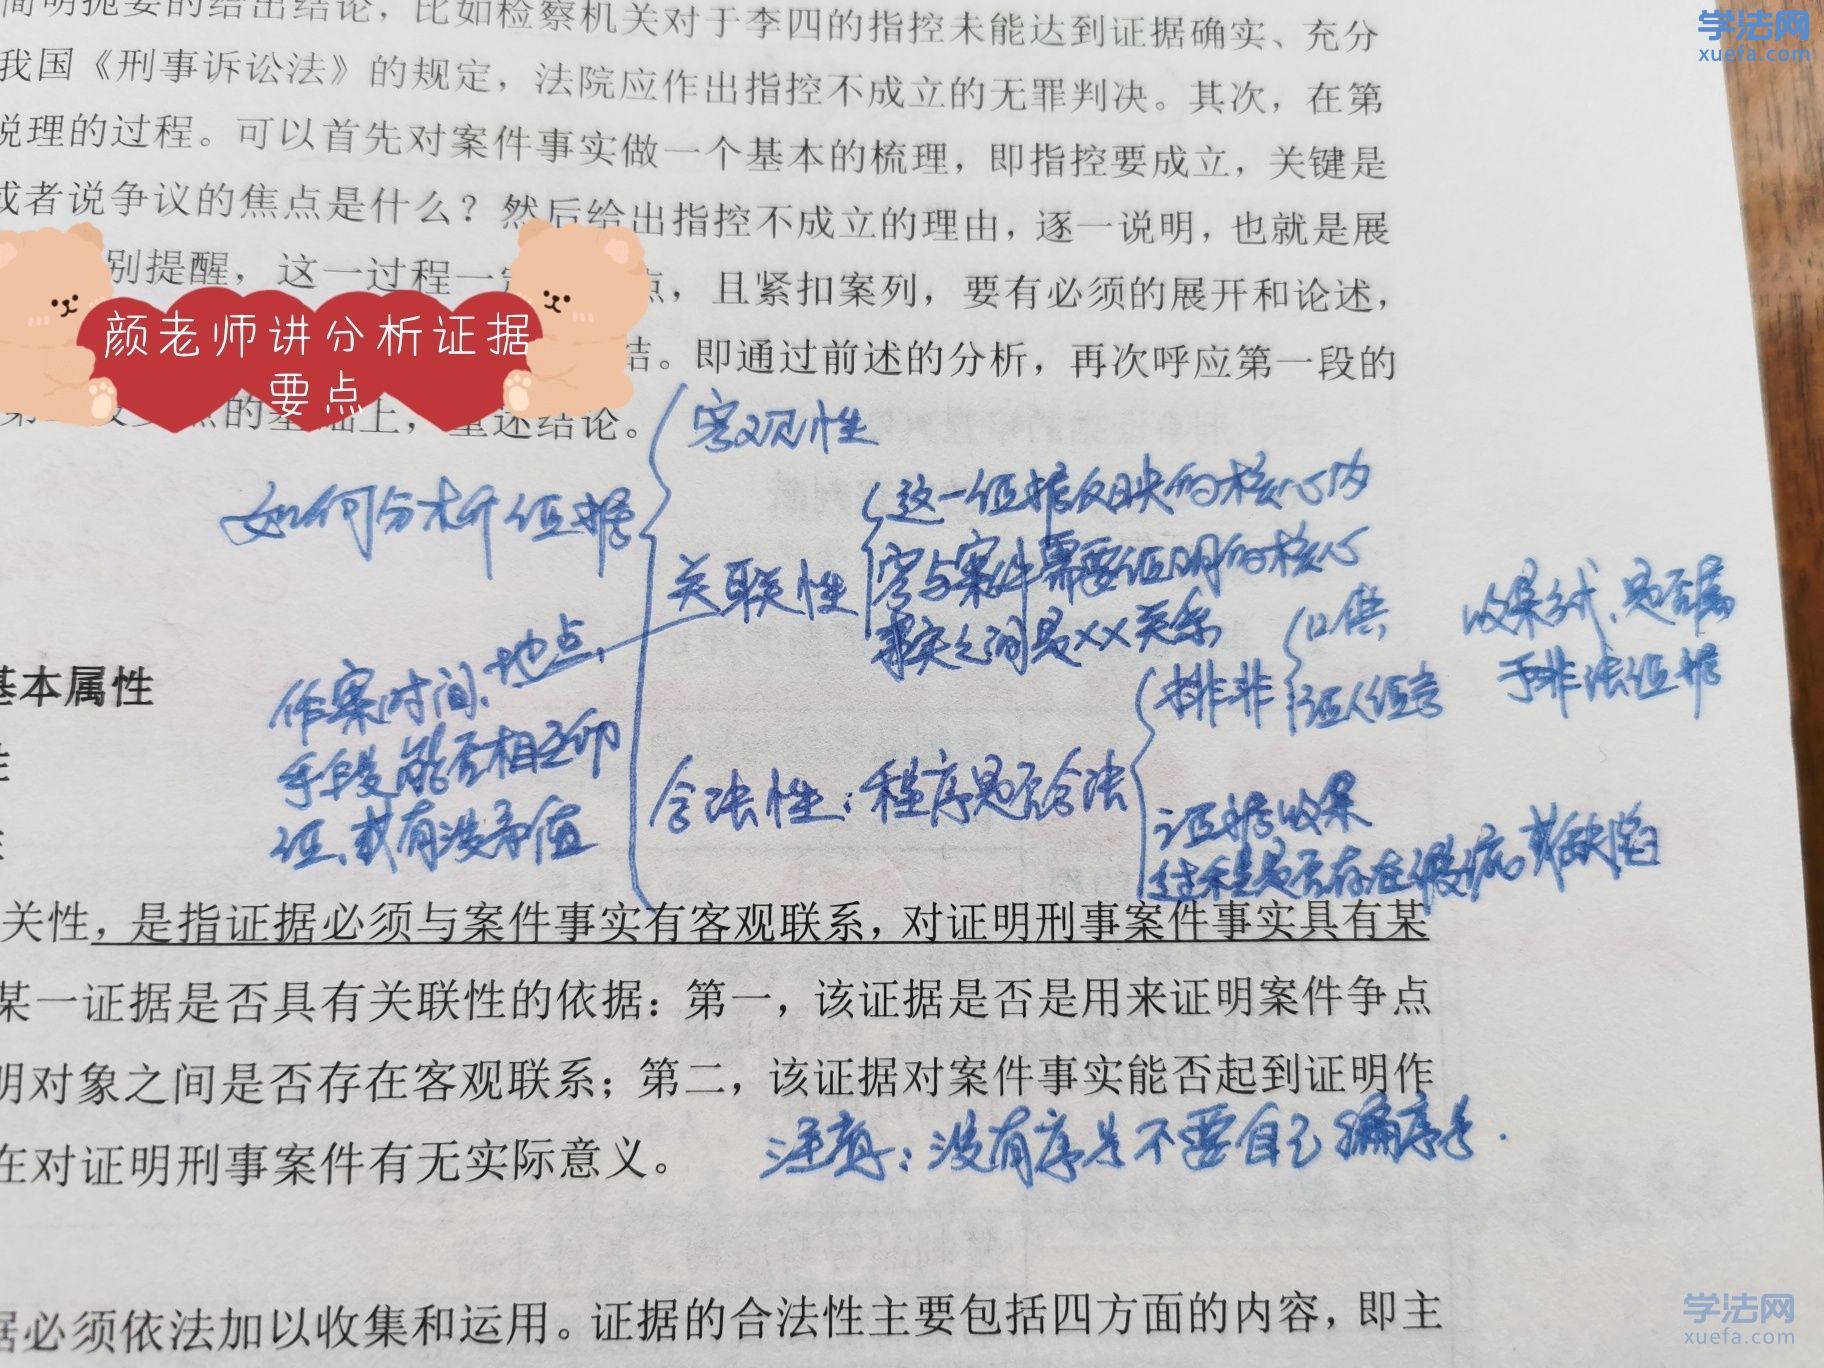 简明扼要的给出结论，比如检察机关对于李四的指控未能达到证据确实、充分
我国《刑事诉讼法》的规定，法院应作出指控不成立的无罪判决。其次，在第
说理的过程。可以首先对案件事实做一个基本的梳理，即指控要成立，关键是
或者说争议的焦点是什么？然后给出指控不成立的理由，逐一说明，也就是展
别提醒，这一过程一定 点，且紧扣案列，要有必须的展开和论述，
结。即通过前述的分析，再次呼应第一段的
的基础上，重述结论。
颜老师讲分析证据
要点
如何分析证据
客观性
关联性
这一证据反映的核心内
容与案件需要证明的核心
事实之间是XX关系
作案时间、地点、
手段能否相互印
证、或有没矛盾
合法性：程序是否合法
排非
口供
证人证言
收集方式、是否属
于非法证据
证据收集
过程是否存在瑕疵或缺陷
基本属性
性
性
关性，是指证据必须与案件事实有客观联系，对证明刑事案件事实具有某
某一证据是否具有关联性的依据：第一，该证据是否是用来证明案件争点
明对象之间是否存在客观联系；第二，该证据对案件事实能否起到证明作
在对证明刑事案件有无实际意义。
注意：没有序号不要自己编序号.
据必须依法加以收集和运用。证据的合法性主要包括四方面的内容，即主
学法网
xuefa.com
学法网
xuefa.com